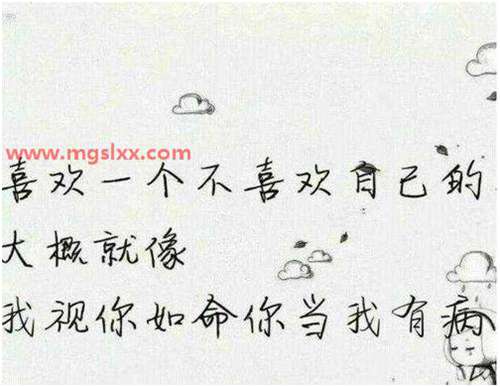 www.mgslxx.com
喜欢一个不喜欢自己的
大概就像
我视你如命你当我有病